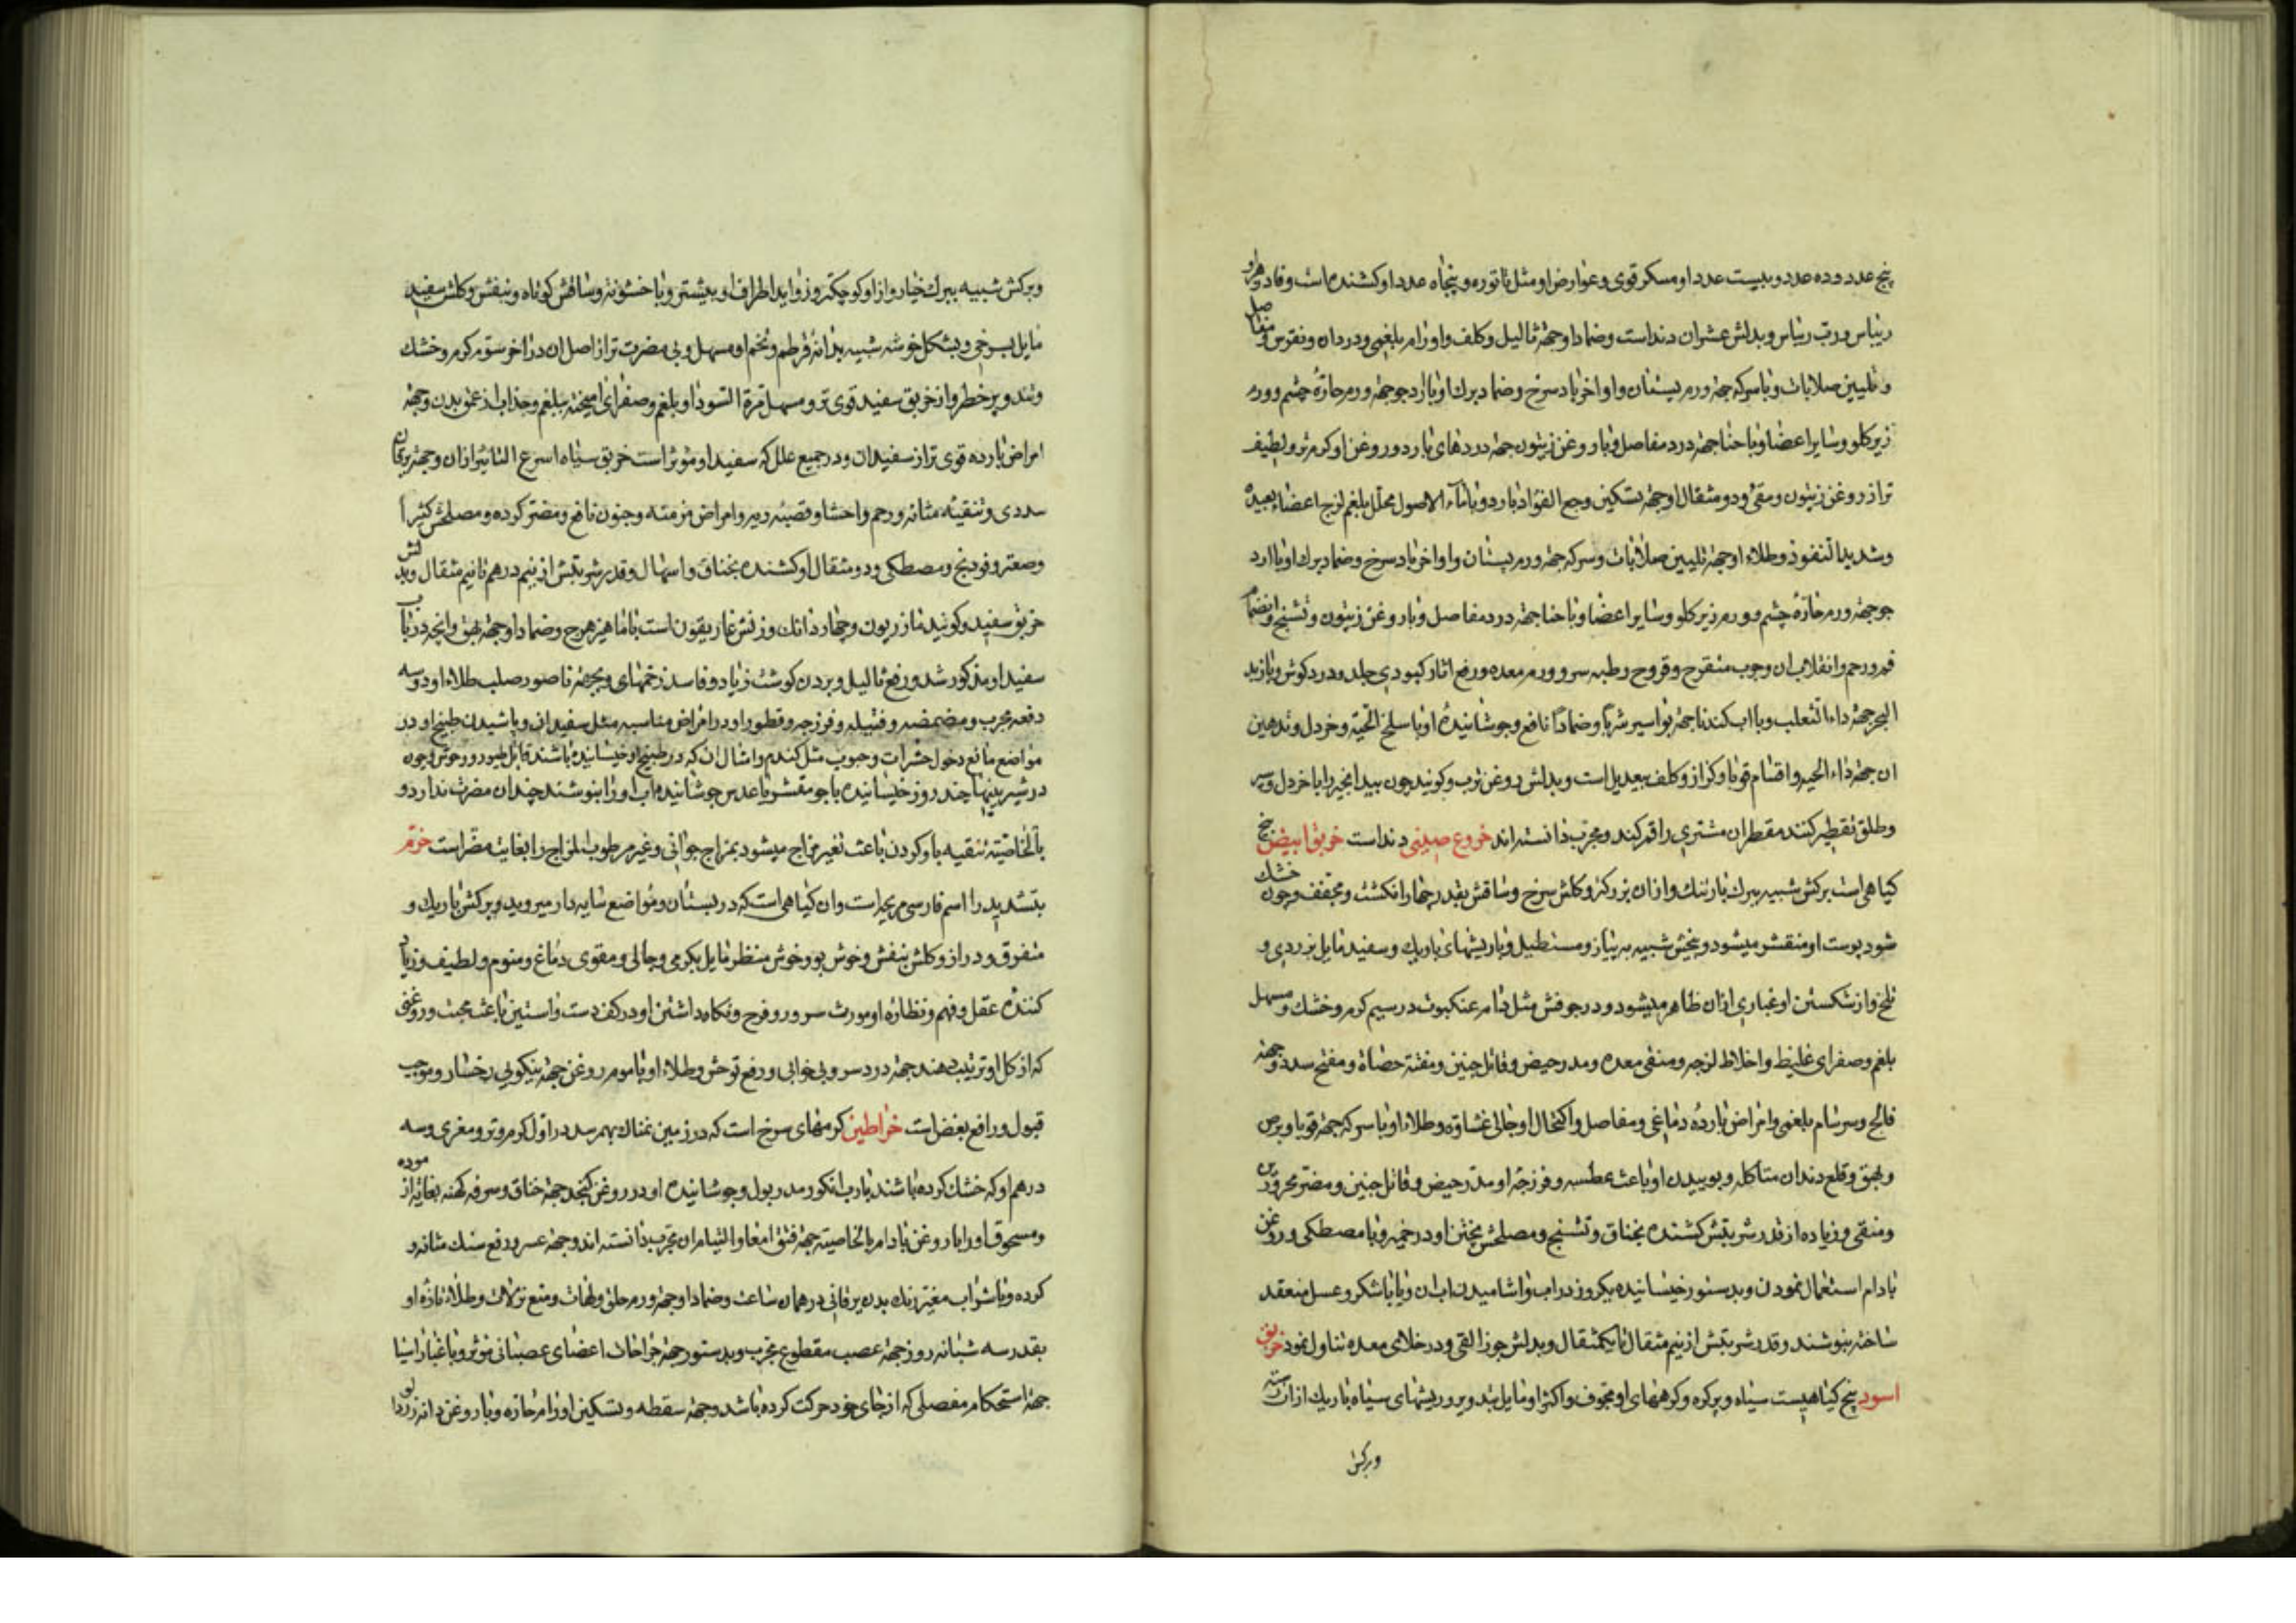 پنج عدد و ده عدد و بیست عدد او مسکر قوی و عوارض او مثل تاتوره و پنجاه عدد او کشنده است و فادزهر او
ریباس و رب ریباس و بدلش عشران دند است و ضمادا و جهة ثالیل و کلف و اورام بلغمی و درد ان و نقرس و مفاصل
و تلیین صلابات و با سرکه جهة ورم پستان و اواخر باد سرخ و ضماد برک او با ارد جو جهة ورم حارهٔ چشم و ورم
زیر کلو و سایر اعضا و با حنا جهة درد مفاصل و با روغن زیتون جهة دردهای بارد و روغن او کرم تر و لطیف
تر از روغن زیتون و مقئ و دو مثقال او جهة تسکین وجع الفؤاد بارد و با ماء الاصول محلل بلغم لزج اعضاء بعیده
و شدید النفوذ و طلاء او جهة تلیین صلابات و سرکه جهة ورم پستان و اواخر باد سرخ و ضماد برک او با ارد
جو جهة ورم حارهٔ چشم و ورم زیر کلو و سایر اعضا و با حنا جهة درد مفاصل و با روغن زیتون و تشنج و انضمام
فم رحم و انقلاب ان و جرب متقرح و قروح رطبه سر و ورم معده و رفع اثار کبودی جلد و درد کوش و با زبد
البحر جهة داء الثعلب و با اب کندنا جهة بواسیر شربا و ضمادا نافع و جوشانیدهٔ او با سلخ الحیة و خردل و تدهین
ان جهة داء الحیه و اقسام قوبا و کزاز و کلف بیعدیل است و بدلش روغن ترب و کویند چون بیدانجیر را با خردل و سیر
و طلق تقطیر کنند مقطر ان مشتری را قمر کند و مجرب دانسته اند خروع صینی دند است خربق ابیض بیخ
کیاهی است برکش شبیه ببرک بارتنک و از ان بزرکتر و کلش سرخ و ساقش بقدر چهار انکشت و مجفف و چون خشک
شود پوست او متقشر میشود و بیخش شبیه به پیاز و مستطیل و با ریشهای باریک و سفید مایل بزردی و
تلخ و از شکستن او غباری از ان ظاهر میشود و در جوفش مثل دام عنکبوت در سیم کرم و خشک و مسهل
بلغم و صفرای غلیظ و اخلاط لزجه و منقی معده و مدر حیض و قاتل جنین و مفتت حصاة و مفتح سدد و جهة
فالج و سرسام بلغمی و امراض باردهٔ دماغی و مفاصل و اکتحال او جالی غشاوه و طلاء او با سرکه جهة قوبا و برص
و بهق و قلع دندان متاکله و بوییدن او باعث عطسه و فرزجهٔ او مدر حیض و قاتل جنین و مضر محرورین
و منقی و زیاده از قدر شربتش کشنده بخناق و تشنج و مصلحش پختن او در خمیر و با مصطکی و روغن
بادام استعمال نمودن و بدستور خیسانیده یکروز در اب و اشامیدن اب ان و یا با شکر و عسل منعقد
ساخته بنوشند و قدر شربتش از نیم مثقال تا یکمثقال و بدلش جوز القی و در خلای معده تناول نمود خربق
اسود بیخ کیاهیست سیاه و پرکره و کرههای او مجوف و اکثر او مایل بتدویر و ریشهای سیاه باریک از ان رسته
و برکش
و برکش شبیه ببرک خیار و از او کوچکتر و زواید اطراف او بیشتر و با خشونة و ساقش کوتاه و بنفش و کلش سفید
مایل بسرخی و بشکل خوشه شبیه بدانهٔ قرطم و تخم او مسهل و بی مضرت تر از اصل ان در اخر سوم کرم و خشک
و تند و پرخطر و از خربق سفید قوی تر و مسهل مرة السودا و بلغم و صفرای امیخته ببلغم و جذاب از عمق بدن و جهة
امراض بارده قوی تر از سفید ان و در جمیع علل که سفید او موثر است خربق سیاه اسرع التاثیر از ان و جهة یرقان
سددی و تنقیهٔ مثانه و رحم و احشا و قصبهٔ ریه و امراض مزمنه و جنون نافع و مضر کرده و مصلحش کثیرا
و صعتر و فودنج و مصطکی و دو مثقال او کشنده بخناق و اسهال و قدر شربتش از نیم درهم تا نیم مثقال و بدلش
خربق سفید و کویند مازریون و چهار دانک وزنش غاریقون است با ماهیزهرج و ضمادا و جهة بهق و انچه در باب
سفید او مذکور شد و رفع ثالیل و بردن کوشت زیاد و فاسد زخمهای و بجهة ناصور صلب طلاء او دو سه
دفعه مجرب و مضمضه و فتیله و فرزجه و قطور او در امراض مناسبه مثل سفید ان و پاشیدن طبیخ او در
مواضع مانع دخول حشرات و حبوب مثل کندم و امثال ان که در طبیخ او خیسانیده باشند قاتل طیور و وحوش و چون
در شیر بینها چند روز خیسانیده با جو مقشر یا عدس جوشانیده اب او را بنوشند چندان مضرت ندارد و
بالخاصیة تنقیه باو کردن باعث تغیر مزاج میشود بمزاج جوانی و غیر مرطوب المزاج را بغایت مضر است خرم
بتشدید را اسم فارسی مریحه است و ان کیاهی است که در بستان و مواضع سایه دار میروید و برکش باریک و
متفرق و دراز و کلش بنفش و خوش بو و خوش منظر مایل بکرمی و جالی و مقوی دماغ و منوم و لطیف و زیاد
کنندهٔ عقل و فهم و نظارهٔ او مورث سرور و فرح و نکاه داشتن او در کف دست و استین باعث محبت و روغنی
که از کل او ترتیب دهند جهة درد سر و بی خوابی و رفع توحش و طلاء او با موم روغن جهة نیکویی رخسار و موجب
قبول و رافع بغض است خراطین کرمهای سرخ است که در زمین نمناک بهم رسد در اول کرم و تر و مغری و سه
درهم او که خشک کرده باشند با رب انکور مدر بول و جوشانیده او در روغن کنجد جهة خناق و سرفه کهنه بغایة ازموده
و مسحوق او را با روغن بادام بالخاصیة جهة فتق امعا و التیام ان مجرب دانسته اند و جهة عسر و رفع سنک مثانه و
کرده و با شراب مغیر رنک بدن یرقانی در همان ساعت و ضمادا و جهة ورم حلق و لهات و منع نزلات و طلاء تازهٔ او
بقدر سه شبانه روز جهة عصب مقطوع مجرب و بدستور جهة جراحات اعضای عصبانی موثر و با غبار اسیا
جهة استحکام مفصلی که از جای خود حرکت کرده باشد و جهة سقطه و تسکین اورام حاره و با روغن دانه زردالو